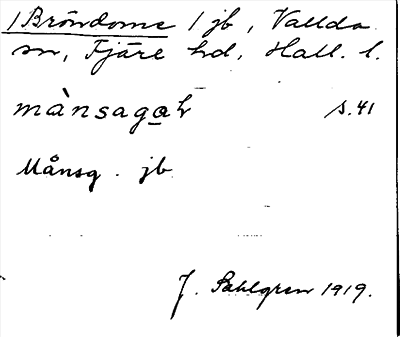 / Bröndome / jb, Vallda
sn, Fjäre hd, Hall. l.
mànsagaḥ s. 41
Månsg. jb.
J. Sahlgren 1919.